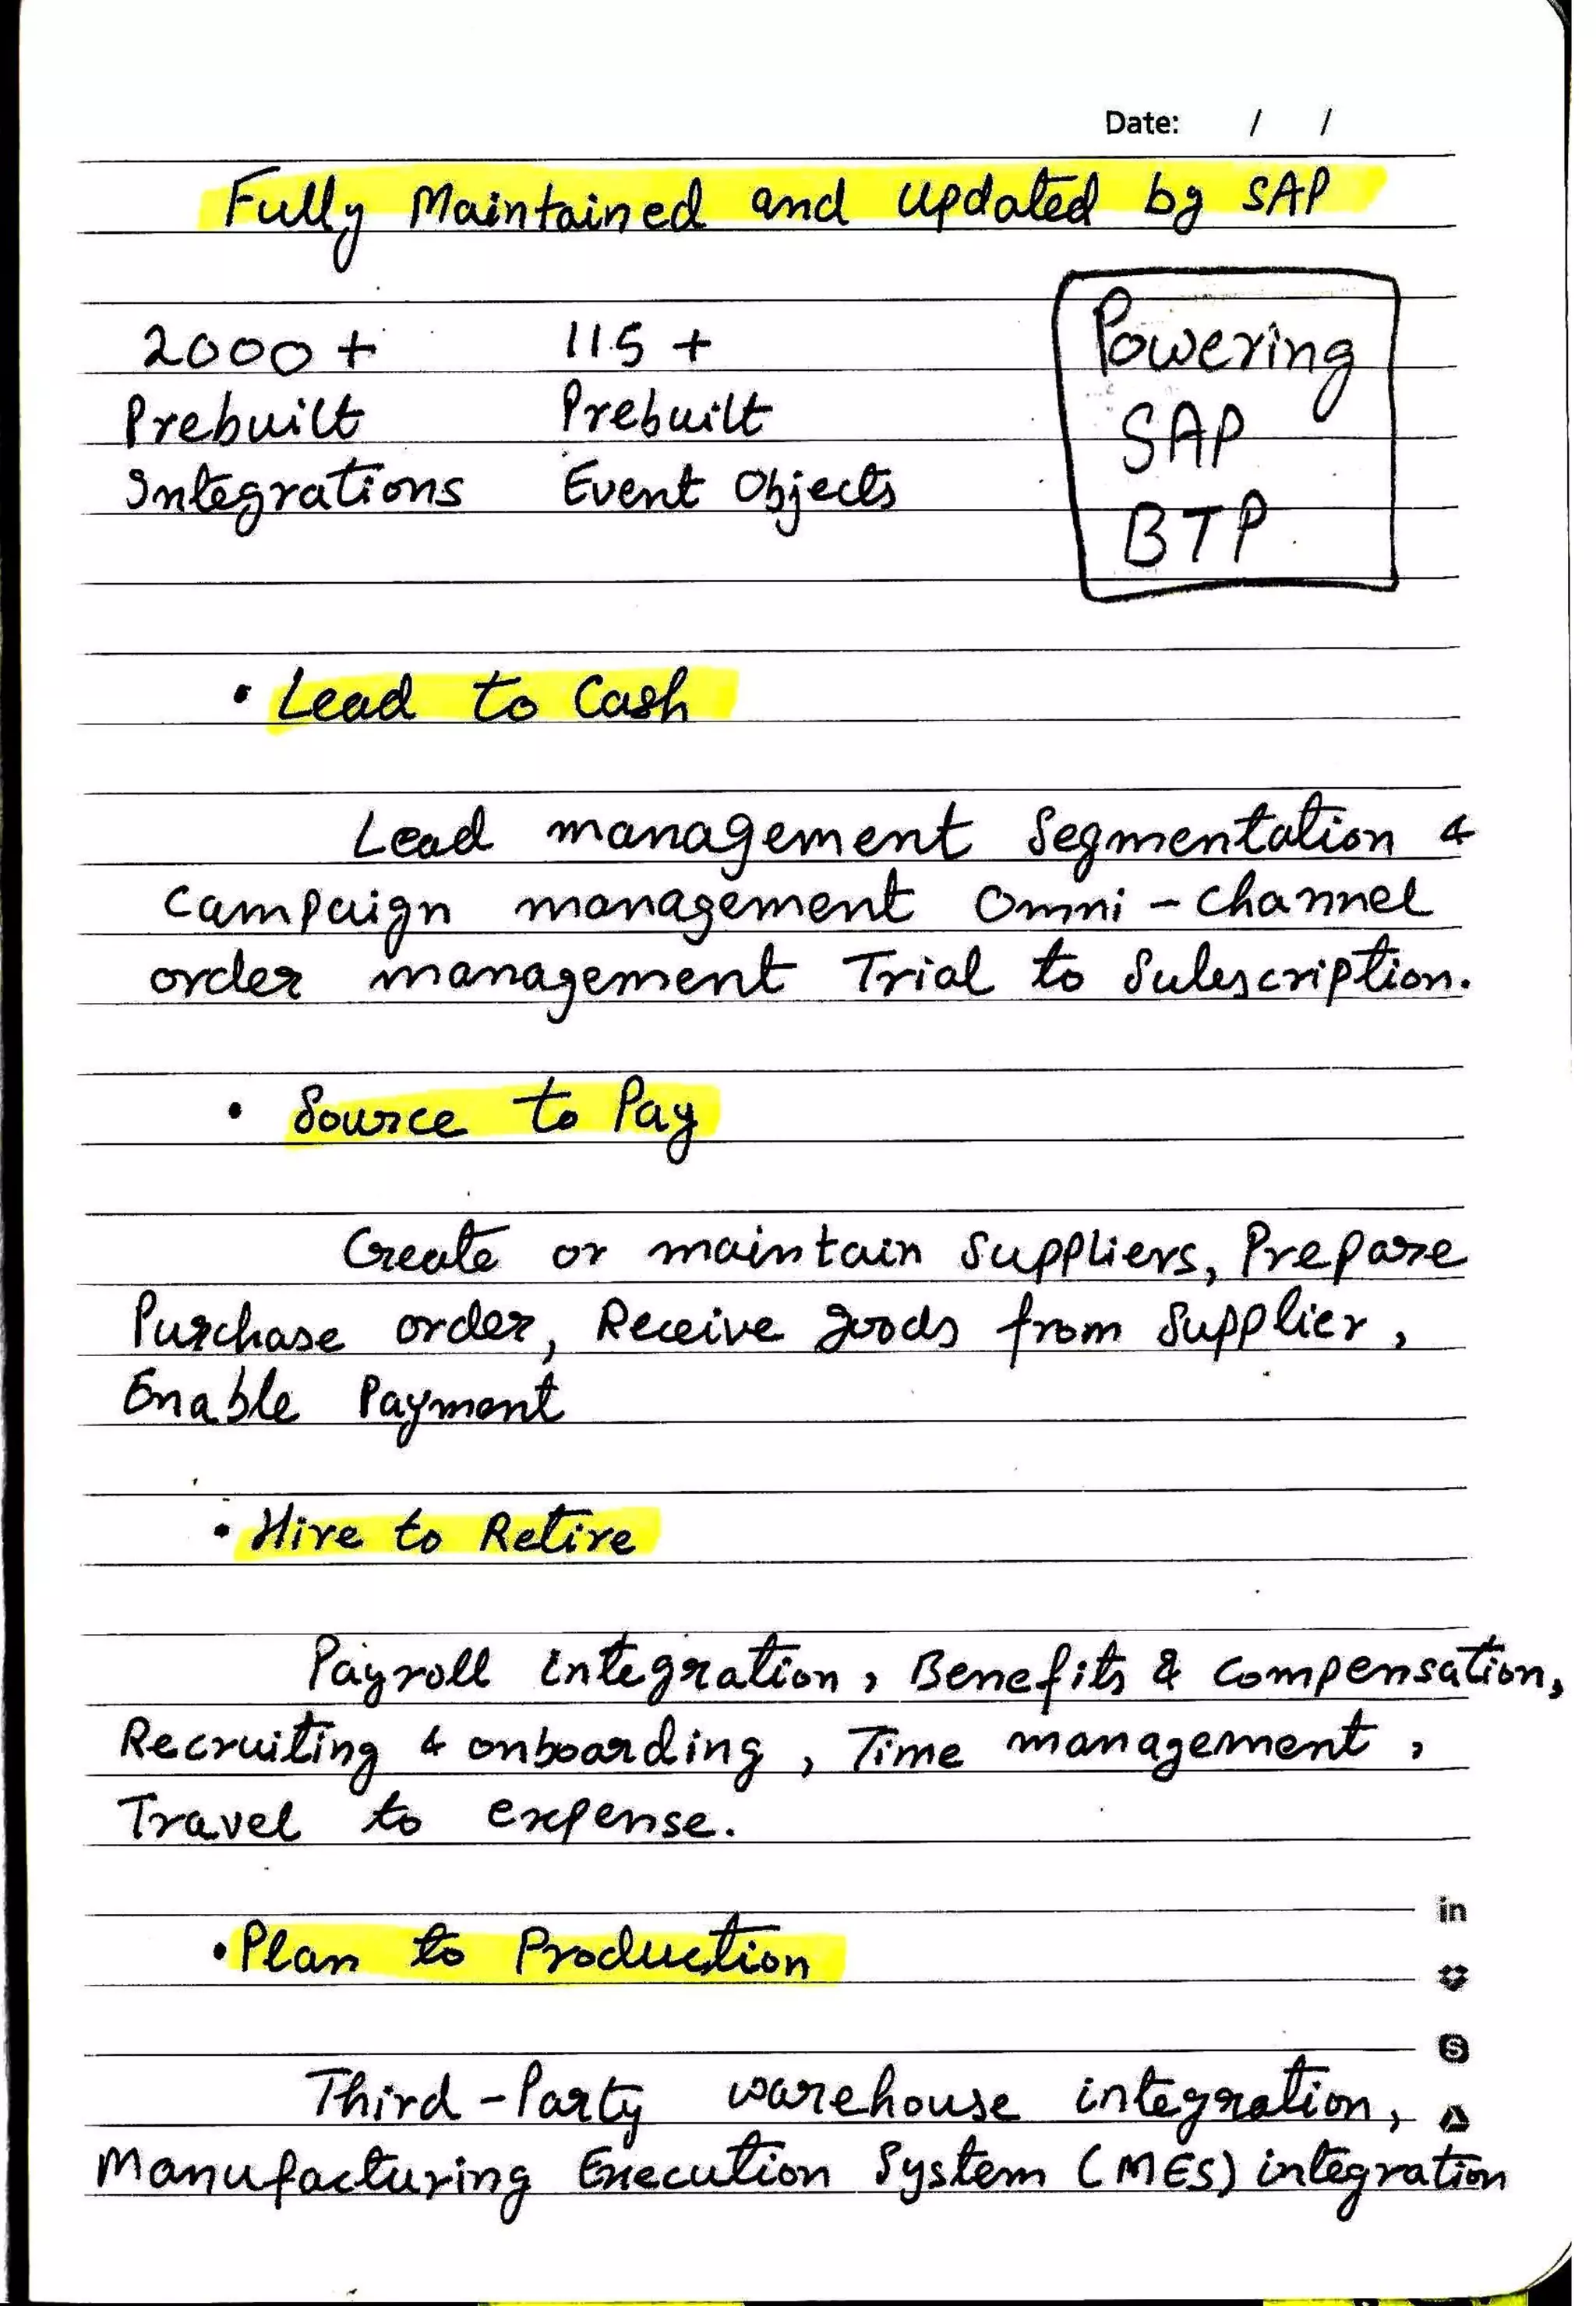 Date: / /
Fully Maintained and Updated by SAP
2000 + 115 +
Prebuilt Prebuilt
Integrations Event Objects
Powering
SAP
BTP
• Lead to Cash
Lead management Segmentation &
Campaign management Omni - Channel
order management Trial to Subscription.
• Source to Pay
Create or maintain Suppliers, Prepare
Purchase order, Receive goods from Supplier,
Enable Payment
• Hire to Retire
Payroll integration, Benefits & Compensation,
Recruiting & onboarding, Time management,
Travel to expense.
• Plan to Production
Third-Party warehouse integration,
Manufacturing Execution System (MES) integration
in